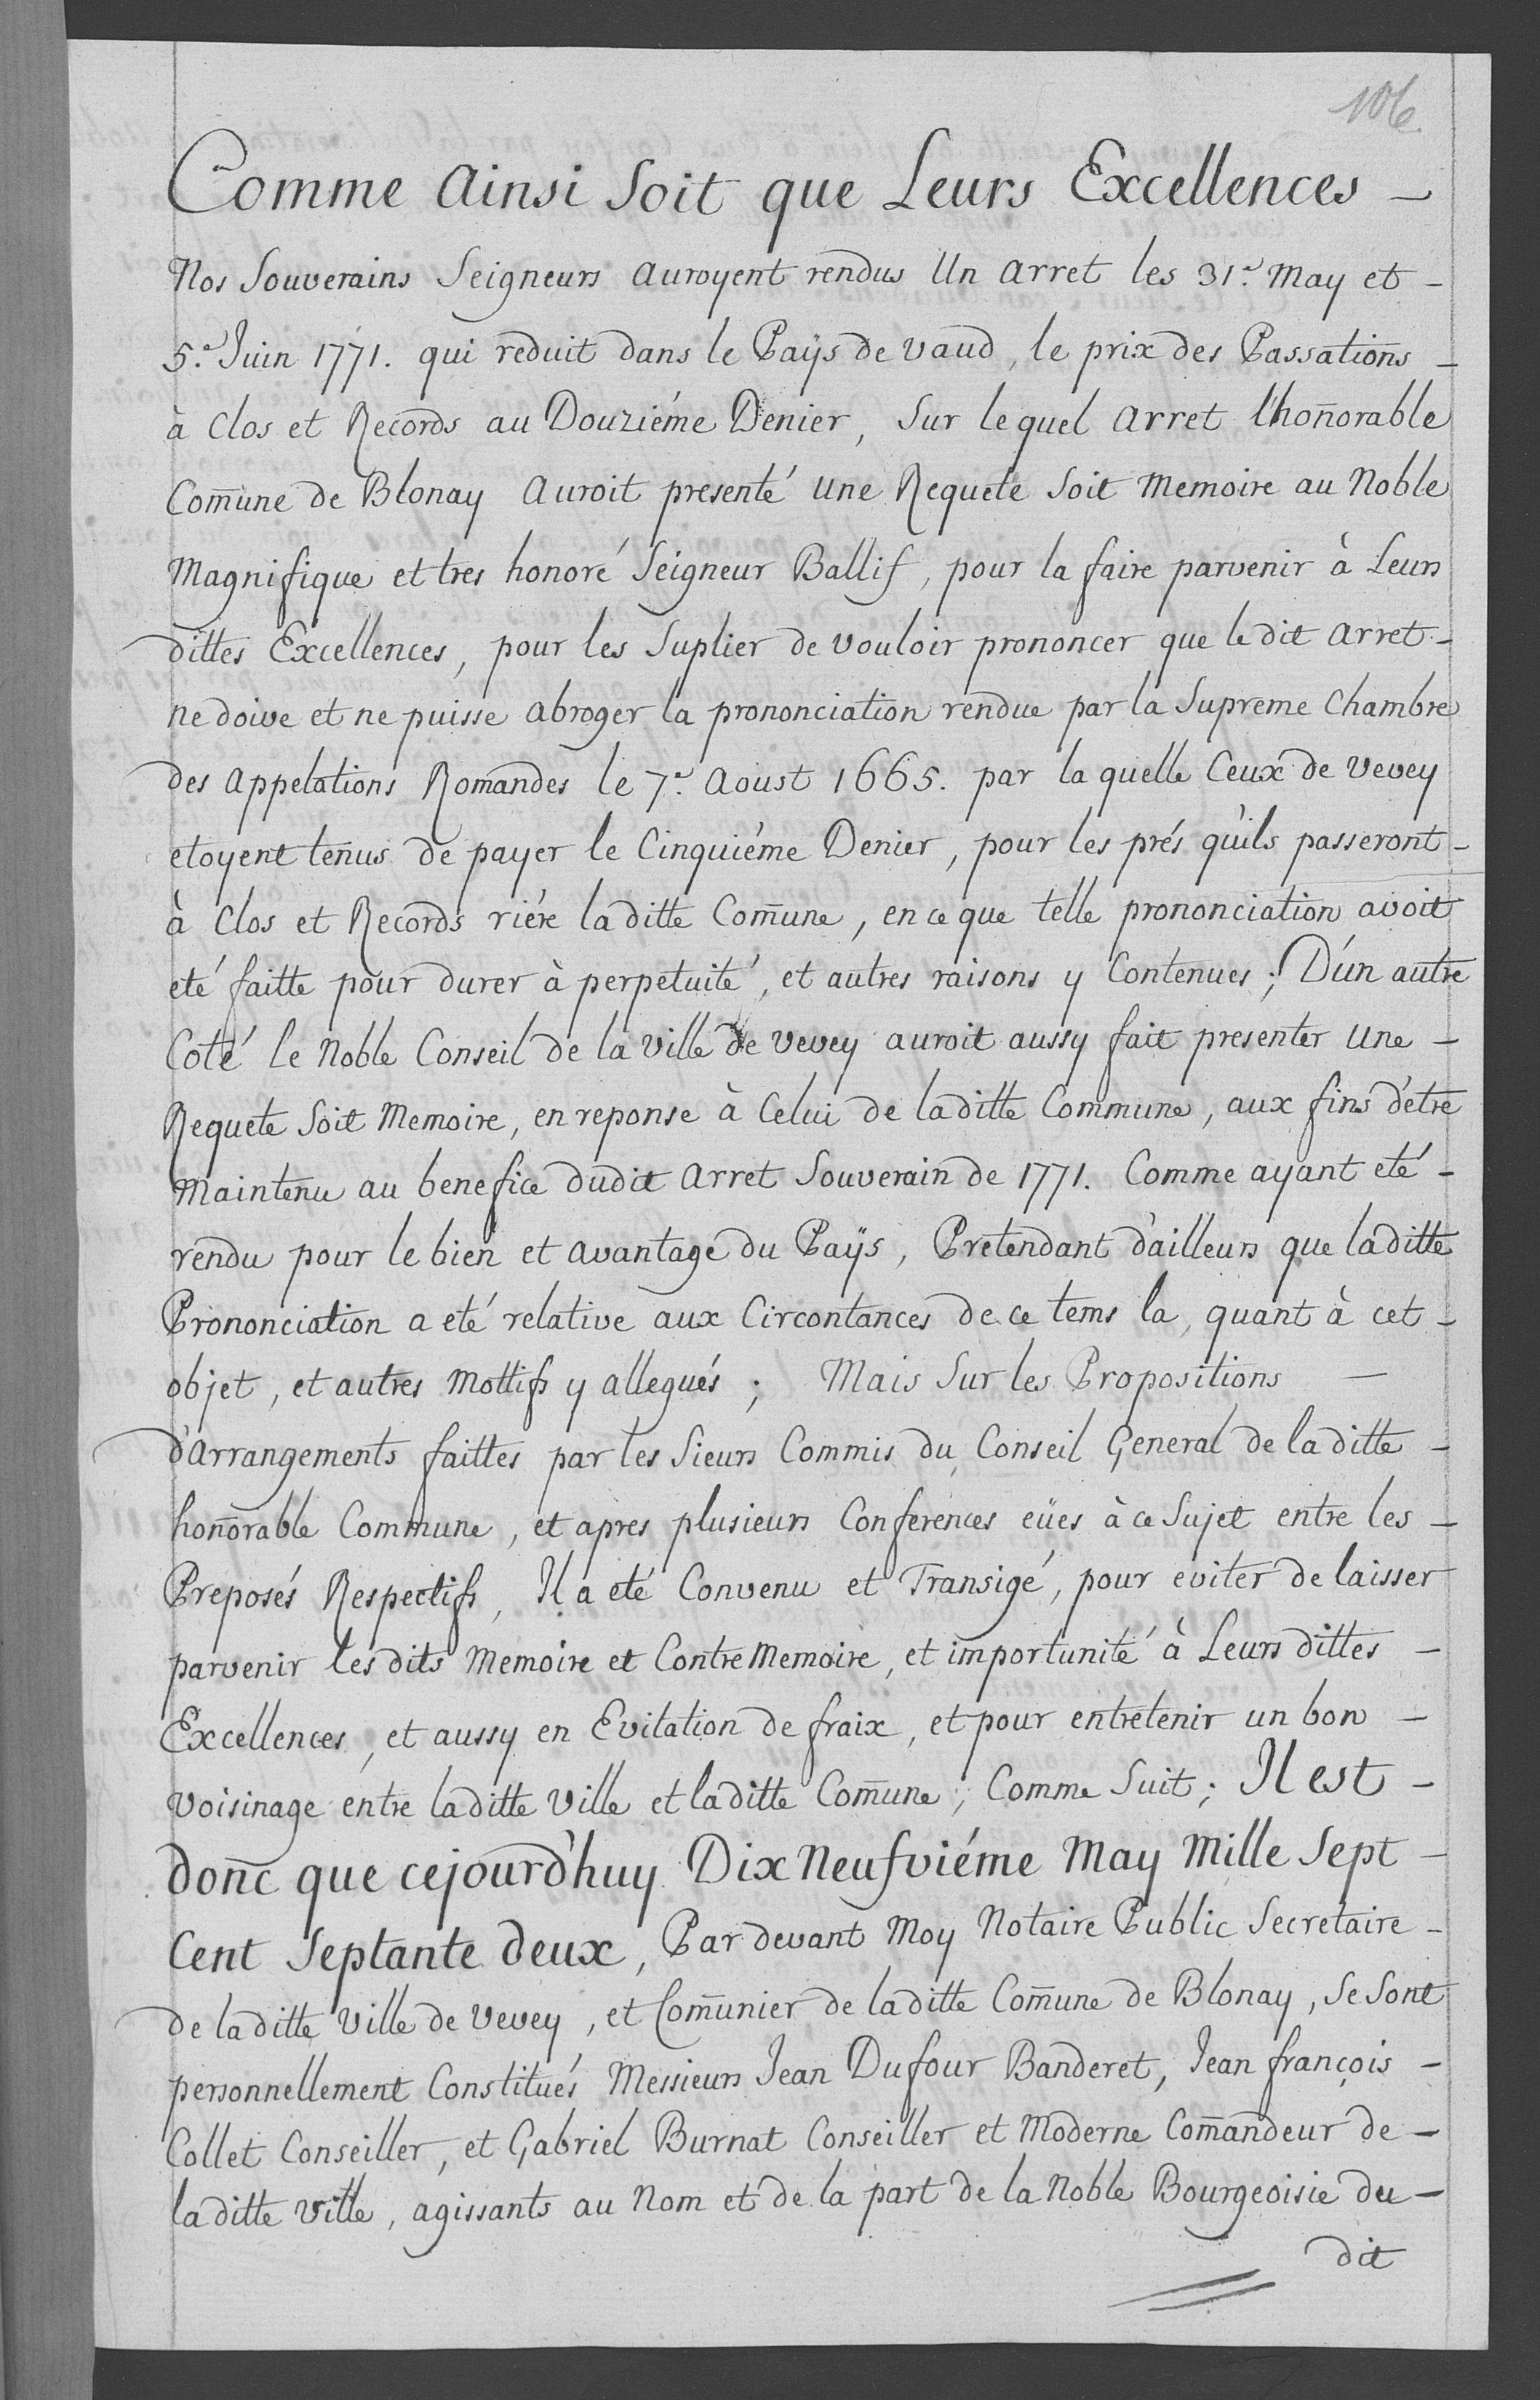 106
Comme Ainsi Soit que Leurs Excellences –
Nos Souverains Seigneurs auroyent rendus Un Arret les 31.e May et –
5.e Juin 1771. qui reduit dans le Païs de Vaud, le prix des Passations –
à Clos et Records au Douziéme Denier, Sur lequel Arret l'hon̄orable
Com̄une de Blonay Auroit presenté Une Requete Soit Memoire au Noble
Magnifique et tres honoré Seigneur Ballif, pour la faire parvenir à Leurs
dittes Excellences, pour les Suplier de vouloir prononcer que ledit Arret –
ne doive et ne puisse abroger la prononciation rendue par la Supreme Chambre
des Appelations Romandes le 7.e Aoust 1665. par la quelle Ceux de Vevey
etoyent tenus de payer le Cinquiéme Denier, pour les prés qu'ils passeront –
à Clos et Records riére laditte Com̄une, en ce que telle prononciation avoit
eté faitte pour durer à perpetuité, et autres raisons y Contenues; D'un autre
Coté Le Noble Conseil de la Ville de Vevey auroit aussy fait presenter Une –
Requete Soit Memoire, en reponse à Celui de laditte Commune, aux fins d'etre
Maintenu au benefice dudit Arret Souverain de 1771. Comme ayant eté –
rendu pour le bien et avantage du Païs, Pretendant d'ailleurs que laditte
Prononciation a eté relative aux Circontances de ce tems la, quant à cet –
objet, et autres Mottifs y allegués; Mais Sur les Propositions –
d'Arrangements faittes par les Sieurs Commis du Conseil General de laditte –
hon̄orable Commune, et apres plusieurs Conferences eües à ce Sujet entre les –
Preposés Respectifs, Il a eté Convenu et Transigé, pour eviter de laisser
parvenir lesdits Memoire et Contre Memoire, et importunité à Leurs dittes –
Excellences, et aussy en Evitation de fraix, et pour entretenir un bon –
voisinage entre laditte Ville et laditte Com̄une; Comme Suit; Il est –
donc que cejourd'huy Dix Neufviéme May Mille Sept –
Cent Septante deux, Par devant Moy Notaire Public Secretaire –
de laditte Ville de Vevey, et Com̄unier de laditte Com̄une de Blonay, Se Sont
personnellement Constitués Messieurs Jean Dufour Banderet, Jean françois –
Collet Conseiller, et Gabriel Burnat Conseiller et Moderne Com̄andeur de –
laditte Ville, agissants au Nom et de la part de la Noble Bourgeoisie du –
dit